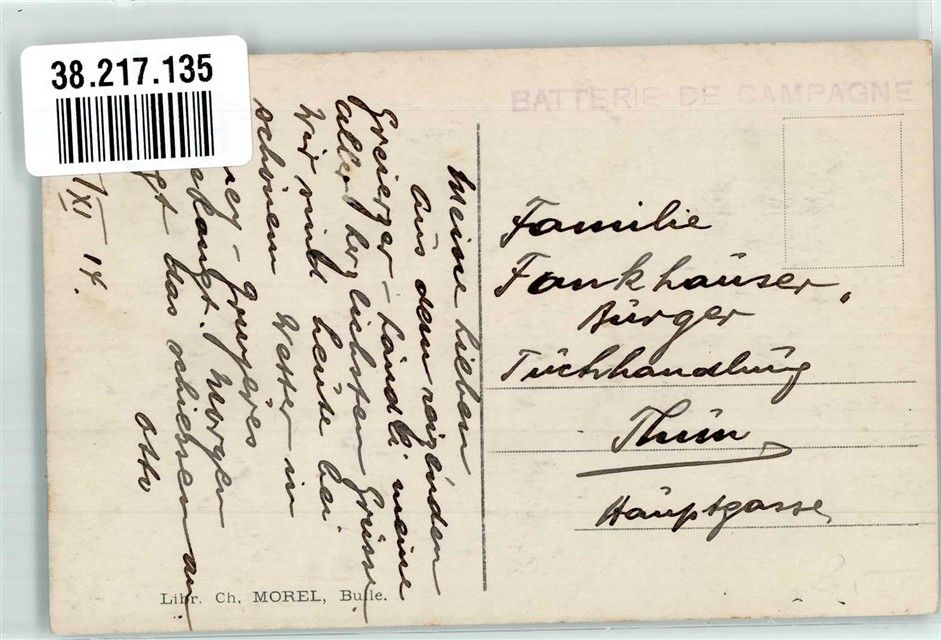 38.217.135
BATTERIE DE CAMPAGNE
Meine Lieben
Aus dem reizenden
Greierzer-Ländli meine
allerherzlichsten Grüsse.
Wir sind heute bei
schönem Wetter in
Gruyères
Morgen
das schiessen an.
Otto
/XI 14.
Familie
Fankhauser,
Bürger
Tuchhandlung
Thun
Hauptgasse
Libr. Ch. MOREL, Bulle.